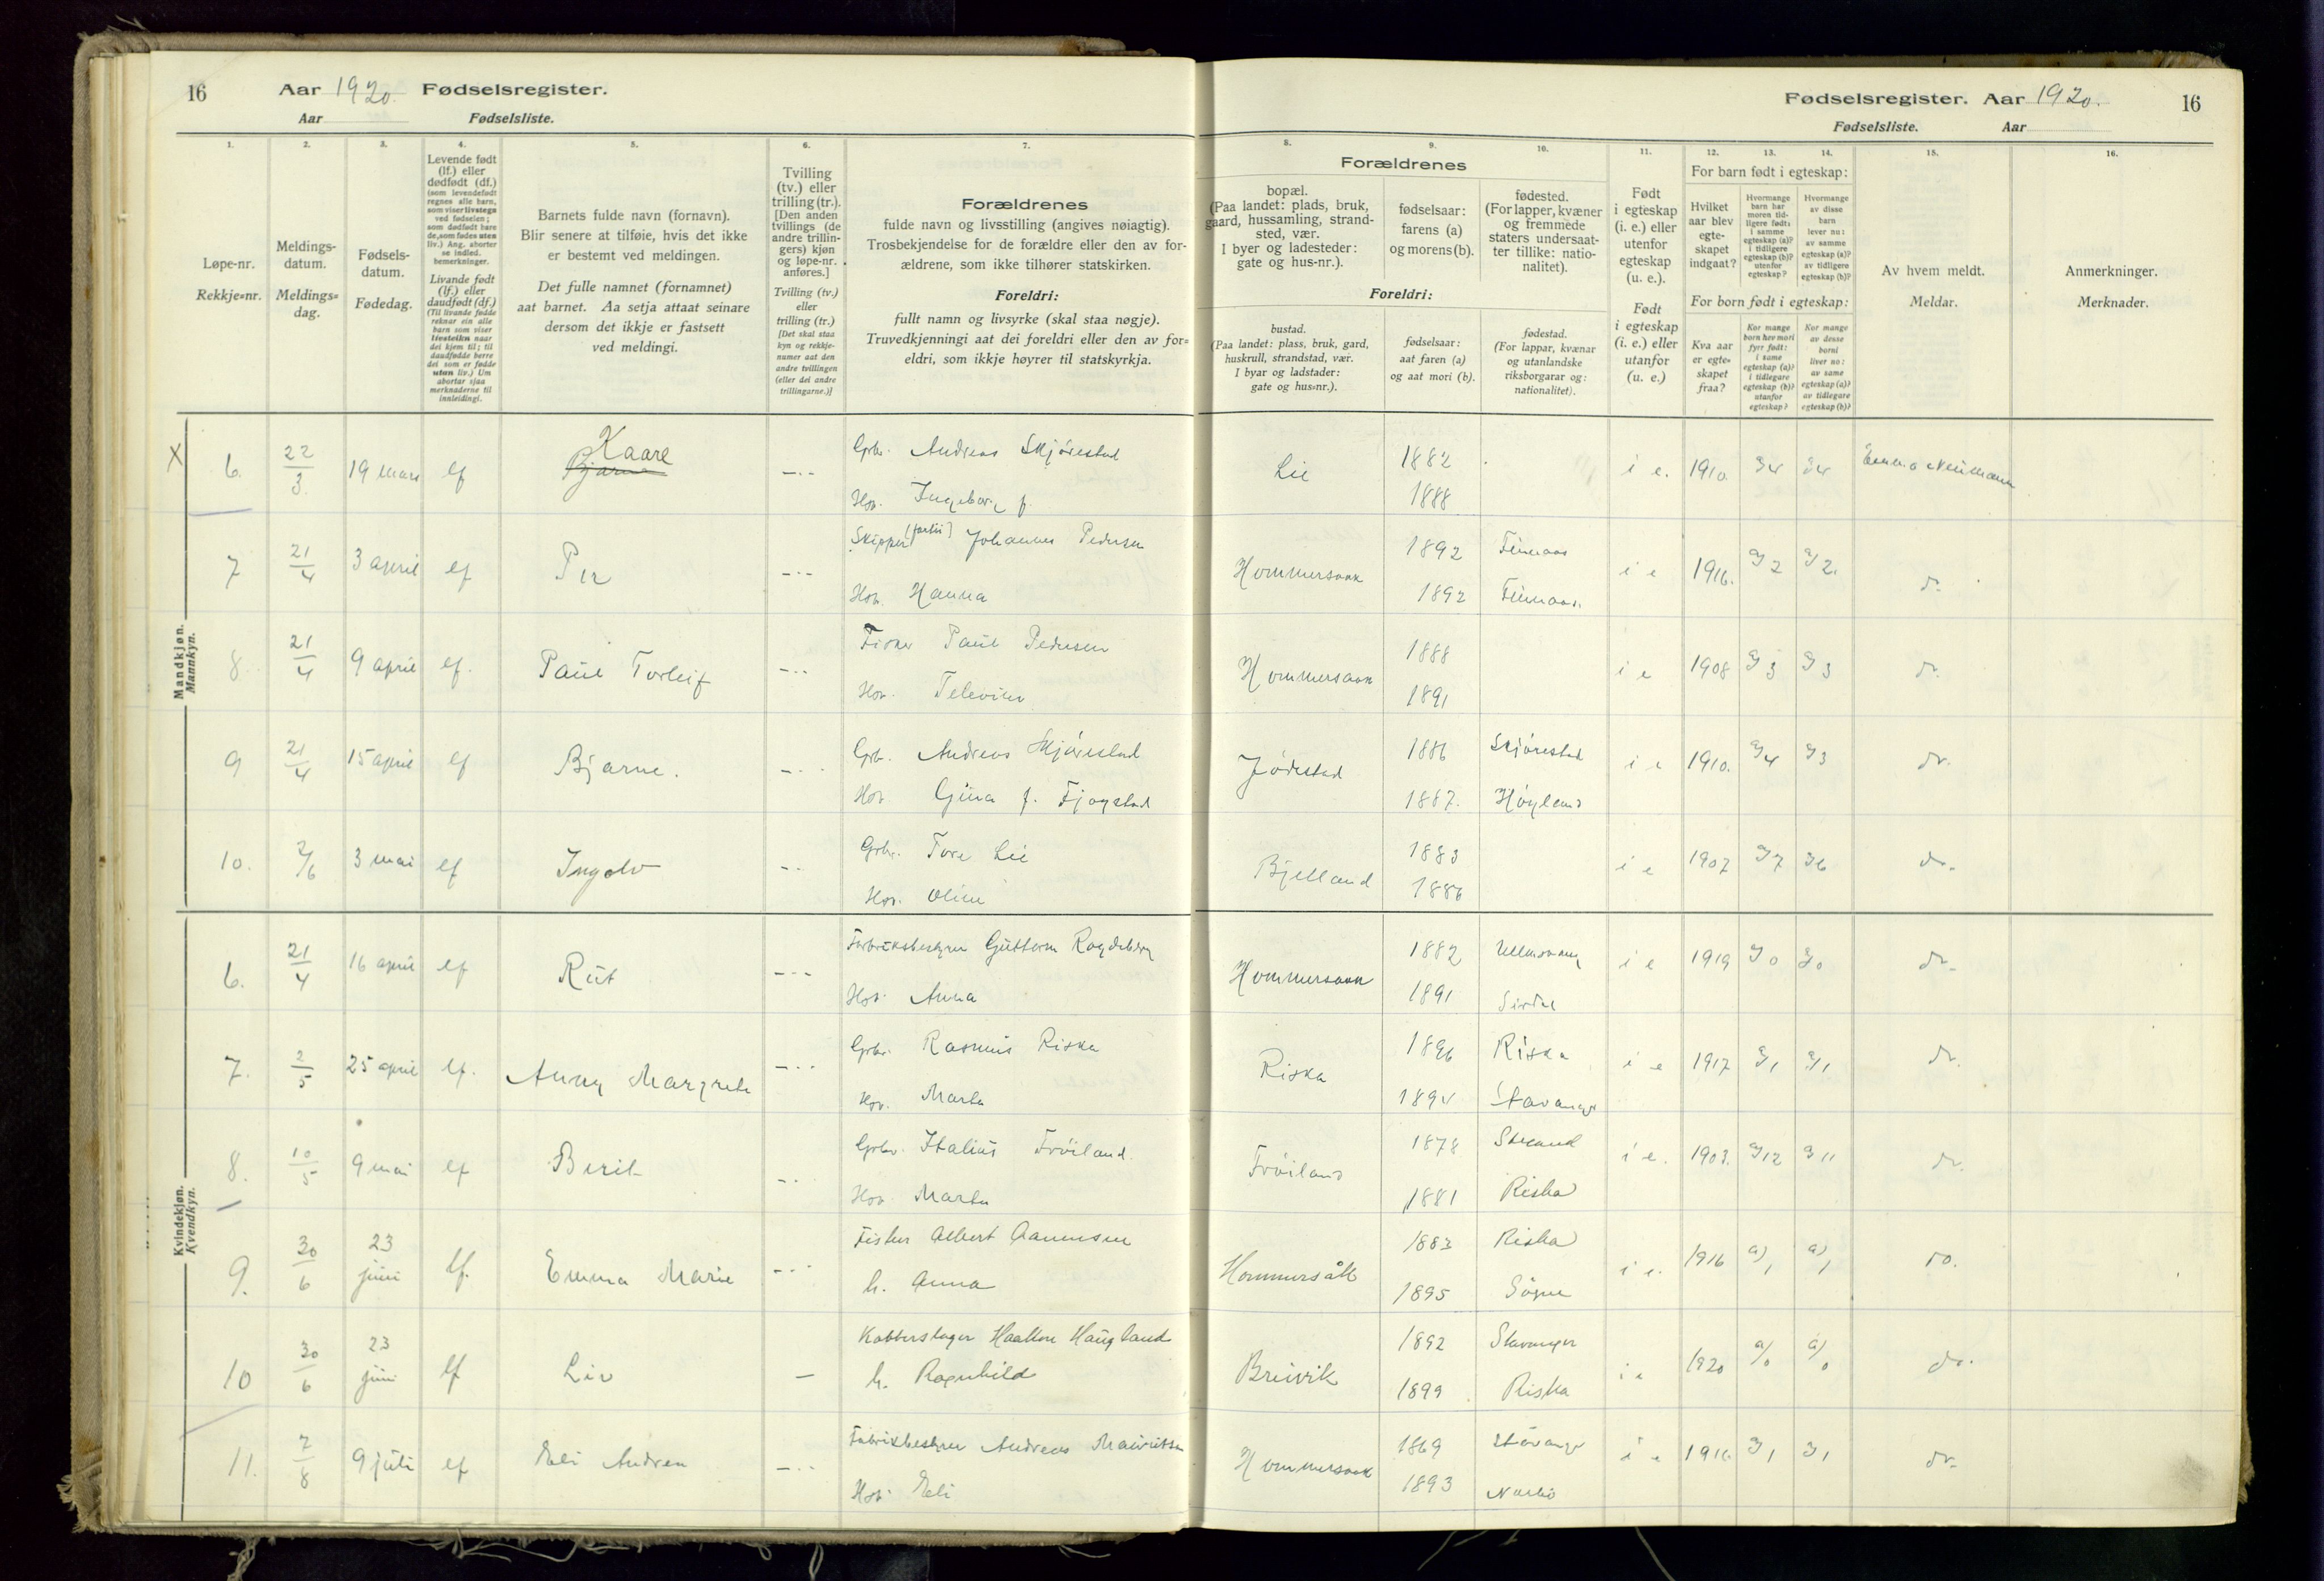 16 Aar 1920. Fødselsregister.
Aar Fødselsliste.
Fødselsregister. Aar 1920. 16
Fødselsliste. Aar
1. 2. 3. 4. 5. 6. 7.
Løpe-nr.
Rekkje-nr.
Meldings-
datum.
Meldings-
dag.
Fødsels-
datum.
Fødedag.
Levende født
(lf.) eller
dødfødt (df.)
(som levendefødt
regnes alle barn,
som viser livstegn
ved fødselen;
som dødfødt bare
de, som fødes uten
liv.) Ang. aborter
se indled.
bemerkninger.
Livande født
(lf.) eller
daudfødt (df.)
(Til livande fødde
reknar ein alle
barn som viser
livsteikn naar
dei kjem til; til
daudfødde berre
dei som er fødde
utan liv.) Um
abortar sjaa
merknaderne til
innleidingi.
Barnets fulde navn (fornavn).
Blir senere at tilføie, hvis det ikke
er bestemt ved meldingen.
Det fulle namnet (fornamnet)
aat barnet. Aa setja attaat seinare
dersom det ikkje er fastsett
ved meldingi.
Tvilling
(tv.) eller
trilling (tr.).
[Den anden
tvillings (de
andre trillin-
gers) kjøn
og løpe-nr.
anføres.]
Tvilling (tv.)
eller
trilling (tr.)
[Det skal staa
kyn og rekkje-
numer aat den
andre tvillingen
(eller dei andre
trillingarne.)]
Forældrenes
fulde navn og livsstilling (angives nøiagtig).
Trosbekjendelse for de forældre eller den av for-
ældrene, som ikke tilhører statskirken.
Foreldri:
fullt namn og livsyrke (skal staa nøgje).
Truvedkjenningi aat dei foreldri eller den av for-
eldri, som ikkje høyrer til statskyrkja.
8. 9. 10. 11. 12. 13. 14. 15. 16.
Forældrenes
bopæl.
(Paa landet: plads, bruk,
gaard, hussamling, strand-
sted, vær.
I byer og ladesteder:
gate og hus-nr.).
fødselsaar:
farens (a)
og morens (b).
fødested.
(For lapper, kvæner
og fremmede
staters undersaat-
ter tillike: natio-
nalitet).
Foreldri:
bustad.
(Paa landet: plass, bruk, gard,
huskrull, strandstad, vær.
I byar og ladstader:
gate og hus-nr.).
fødselsaar:
aat faren (a)
og aat mori (b).
fødestad.
(For lappar, kvænar
og utanlandske
riksborgarar og:
nationalitet).
Født
i egteskap
(i. e.) eller
utenfor
egteskap
(u. e.).
Født
i egteskap
(i. e.) eller
utanfor
(u. e.)
For barn født i egteskap:
Hvilket
aar blev
egte-
skapet
indgaat?
Hvormange
barn har
moren tid-
ligere født:
i samme
egteskap (a)?
i tidligere
egteskap (b)?
utenfor
egteskap?
Hvormange
av disse
barn
lever nu:
av samme
egteskap (a)?
av tidligere
egteskap (b)?
For born født i egteskap:
Kva aar
er egte-
skapet
fraa?
Kor mange
born hev mori
fyrr født:
i same
egteskap (a)?
i tidlegare
egteskap (b)?
utanfor
egteskap?
Kor mange
av desse
borni
liver no:
av same
egteskap (a)?
av tidlegare
egteskap (b)?
Av hvem meldt.
Meldar.
Anmerkninger.
Merknader.
Mandkjøn.
Mannkyn.
X 6. 22/3. 19 mars lf Kaare Bjarne Grbr. Andreas Skjørestad Lie 1882 i e. 1910. a) 4 a) 4 Emma Neumann
Hst. Ingeborg f. 1888
7 21/4 3 april lf Per Skipper Johannes Pedersen Hommersaak 1892 i e 1916. a) 2 a) 2. do.
Hst. Hanna 1892
8. 21/4 9 april lf. Paul Torleif Fisker Paul Pedersen Hommersaak 1888 i e 1908 a) 3 a) 3 do.
Hst. 1891
9 21/4 15 april lf Bjarne. Grbr. Andreas Skjørestad Jødestad 1886 Skjørestad i e 1910. a) 4 a) 3 do.
Hst. Gina f. Fjogstad 1887. Høyland
10. 2/6 3 mai lf Ingolv Grbr. Tore Lie Bjelland 1883 i e 1907 a) 7 a) 6 do.
Hst. Oline 1886
Kvindekjøn.
Kvendkyn.
6. 21/4 16 april lf Rut Fabrikbestyrer Guttorm Hommersaak 1882 Ullensvang i e 1919 a) 0 a) 0 do.
Hst. Anna 1891 Sirdal
7. 2/5 25 april lf. Anny Margrete Grbr. Rasmus Riska Riska 1896 Riska i e 1917 a) 1 a) 1 do.
Hst. Marta 1894 Stavanger
8. 10/5 9 mai lf Berit Grbr. Italius Frøiland Frøiland 1878 Strand i e. 1903. a) 12 a) 11 do.
Hst. Marta 1881 Riska
9. 30/6 23 juni lf. Emma Marie Fisker Albert Aanensen Hommersåk 1883 Riska i e. 1916 a) 1 a) 1 do.
h. Anna 1895 Søgne
10 30/6 23 juni lf Liv Kobberslager Haakon Haugland Breivik 1892 Stavanger i e 1920 a) 0 a) 0 do.
h. Ragnhild 1899 Riska
11. 7/8 9 juli lf Eli Andrea Fabrikbestyrer Andreas Mauritzen Hommersaak 1869 Stavanger i e 1916 a) 1 a) 1 do.
Hst. Eli 1893 Nærbø